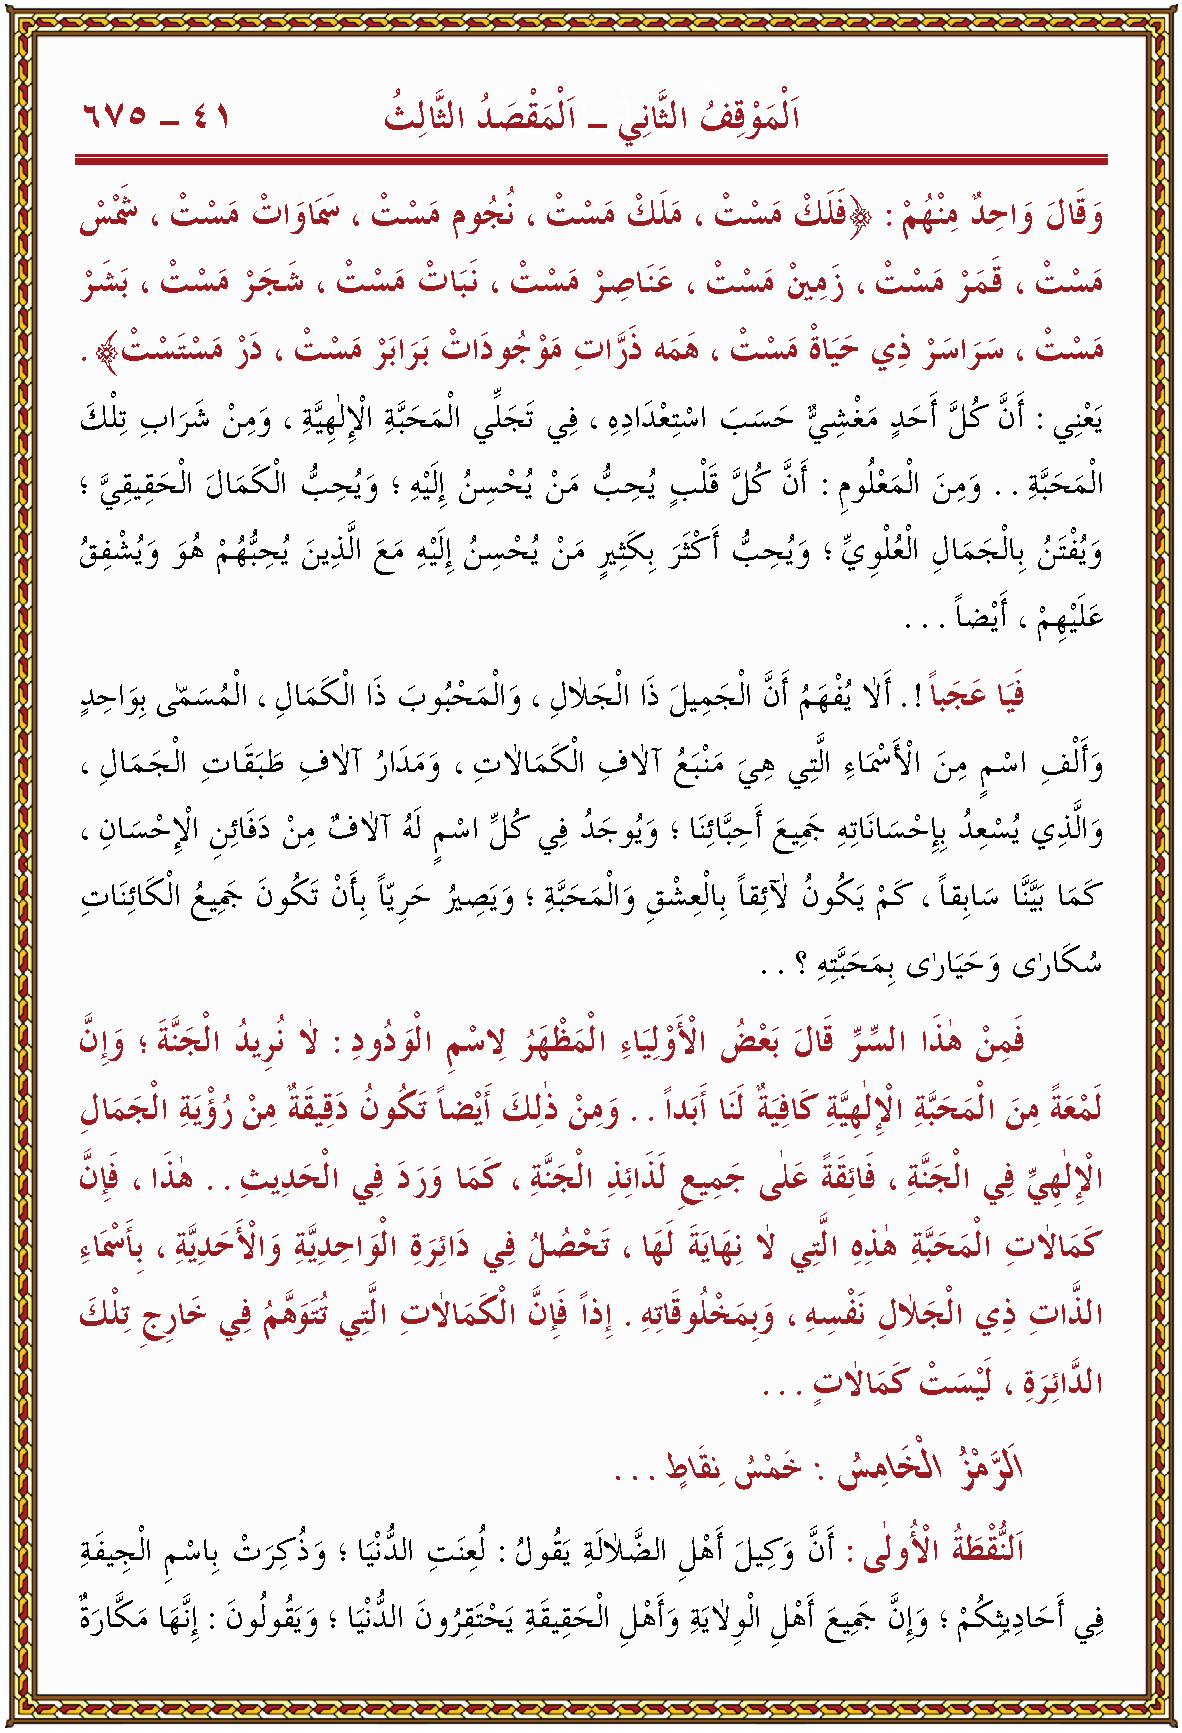 اَلْمَوْقِفُ الثَّانِي ــ اَلْمَقْصَدُ الثَّالِثُ ٤١ ــ ٦٧٥
وَقَالَ وَاحِدٌ مِنْهُمْ : ﴿فَلَكْ مَسْتْ ، مَلَكْ مَسْتْ ، نُجُوم مَسْتْ ، سَمَاوَاتْ مَسْتْ ، شَمْسْ
مَسْتْ ، قَمَرْ مَسْتْ ، زَمِينْ مَسْتْ ، عَنَاصِرْ مَسْتْ ، نَبَاتْ مَسْتْ ، شَجَرْ مَسْتْ ، بَشَرْ
مَسْتْ ، سَرَاسَرْ ذِي حَيَاةْ مَسْتْ ، هَمَه ذَرَّاتِ مَوْجُودَاتْ بَرَابَرْ مَسْتْ ، دَرْ مَسْتَسْتْ﴾ .
يَعْنِي : أَنَّ كُلَّ أَحَدٍ مَغْشِيٌّ حَسَبَ اسْتِعْدَادِهِ ، فِي تَجَلِّي الْمَحَبَّةِ الْإِلٰهِيَّةِ ، وَمِنْ شَرَابِ تِلْكَ
الْمَحَبَّةِ . . وَمِنَ الْمَعْلُومِ : أَنَّ كُلَّ قَلْبٍ يُحِبُّ مَنْ يُحْسِنُ إِلَيْهِ ؛ وَيُحِبُّ الْكَمَالَ الْحَقِيقِيَّ ؛
وَيُفْتَنُ بِالْجَمَالِ الْعُلْوِيِّ ؛ وَيُحِبُّ أَكْثَرَ بِكَثِيرٍ مَنْ يُحْسِنُ إِلَيْهِ مَعَ الَّذِينَ يُحِبُّهُمْ هُوَ وَيُشْفِقُ
عَلَيْهِمْ ، أَيْضاً . . .
فَيَا عَجَباً ! . أَلَا يُفْهَمُ أَنَّ الْجَمِيلَ ذَا الْجَلَالِ ، وَالْمَحْبُوبَ ذَا الْكَمَالِ ، الْمُسَمّٰى بِوَاحِدٍ
وَأَلْفِ اسْمٍ مِنَ الْأَسْمَاءِ الَّتِي هِيَ مَنْبَعُ آلَافِ الْكَمَالَاتِ ، وَمَدَارُ آلَافِ طَبَقَاتِ الْجَمَالِ ،
وَالَّذِي يُسْعِدُ بِإِحْسَانَاتِهِ جَمِيعَ أَحِبَّائِنَا ؛ وَيُوجَدُ فِي كُلِّ اسْمٍ لَهُ آلَافٌ مِنْ دَفَائِنِ الْإِحْسَانِ ،
كَمَا بَيَّنَّا سَابِقاً ، كَمْ يَكُونُ لَائِقاً بِالْعِشْقِ وَالْمَحَبَّةِ ؛ وَيَصِيرُ حَرِيّاً بِأَنْ تَكُونَ جَمِيعُ الْكَائِنَاتِ
سُكَارٰى وَحَيَارٰى بِمَحَبَّتِهِ ؟ . .
فَمِنْ هٰذَا السِّرِّ قَالَ بَعْضُ الْأَوْلِيَاءِ الْمَظْهَرُ لِاسْمِ الْوَدُودِ : لَا نُرِيدُ الْجَنَّةَ ؛ وَإِنَّ
لَمْعَةً مِنَ الْمَحَبَّةِ الْإِلٰهِيَّةِ كَافِيَةٌ لَنَا أَبَداً . . وَمِنْ ذٰلِكَ أَيْضاً تَكُونُ دَقِيقَةٌ مِنْ رُؤْيَةِ الْجَمَالِ
الْإِلٰهِيِّ فِي الْجَنَّةِ ، فَائِقَةً عَلٰى جَمِيعِ لَذَائِذِ الْجَنَّةِ ، كَمَا وَرَدَ فِي الْحَدِيثِ . . هٰذَا ، فَإِنَّ
كَمَالَاتِ الْمَحَبَّةِ هٰذِهِ الَّتِي لَا نِهَايَةَ لَهَا ، تَحْصُلُ فِي دَائِرَةِ الْوَاحِدِيَّةِ وَالْأَحَدِيَّةِ ، بِأَسْمَاءِ
الذَّاتِ ذِي الْجَلَالِ نَفْسِهِ ، وَبِمَخْلُوقَاتِهِ . إِذاً فَإِنَّ الْكَمَالَاتِ الَّتِي تُتَوَهَّمُ فِي خَارِجِ تِلْكَ
الدَّائِرَةِ ، لَيْسَتْ كَمَالَاتٍ . . .
اَلرَّمْزُ الْخَامِسُ : خَمْسُ نِقَاطٍ . . .
اَلنُّقْطَةُ الْأُولٰى : أَنَّ وَكِيلَ أَهْلِ الضَّلَالَةِ يَقُولُ : لُعِنَتِ الدُّنْيَا ؛ وَذُكِرَتْ بِاسْمِ الْجِيفَةِ
فِي أَحَادِيثِكُمْ ؛ وَإِنَّ جَمِيعَ أَهْلِ الْوِلَايَةِ وَأَهْلِ الْحَقِيقَةِ يَحْتَقِرُونَ الدُّنْيَا ؛ وَيَقُولُونَ : إِنَّهَا مَكَّارَةٌ